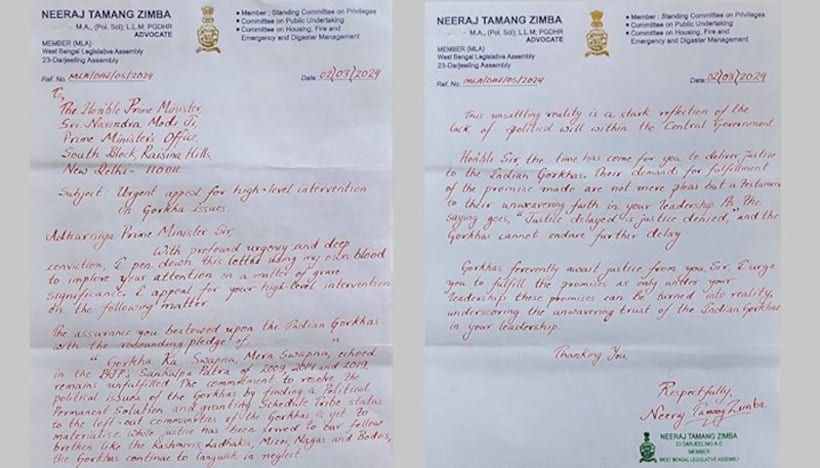 NEERAJ TAMANG ZIMBA
M.A., (Pol. Sci); L.L.M; PGDHR
ADVOCATE
MEMBER (MLA)
West Bengal Legislative Assembly
23-Darjeeling Assembly
• Member : Standing Committee on Privileges
• Committee on Public Undertaking
• Committee on Housing, Fire and
Emergency and Digaster Management
Ref. No. MLA/DAJ/05/2024
Date: 02/03/2024
To,
The Hon'ble Prime Minister,
Sri Narendra Modi Ji,
Prime Minister's Office,
South Block, Raisina Hills,
New Delhi- 110011
Subject: Urgent appeal for high-level intervention
in Gorkha issues.
Adharniya Prime Minister Sir,
With profound urgency and deep
conviction, I pen down this letter using my own blood
to implore your attention on a matter of grave
significance. I appeal for your high-level intervention
on the following matter.
The assurance you bestowed upon the Indian Gorkhas
with the resounding pledge of "
"Gorkha Ka Swapna, Mera Swapna, echoed
in the BJP's Sankalpa Patra of 2009, 2014 and 2019,
remains unfulfilled. The commitment to resolve the
political issues of the Gorkhas by finding a Political
Permanent Solution and granting Schedule Tribe status
to the left-out communities of the Gorkhas is yet to
materialise. While justice has been served to our fellow
brethen like the Kashmiris, Ladhakis, Mizos, Nagas and Bodos,
the Gorkhas continue to languish in neglect.
NEERAJ TAMANG ZIMBA
M.A., (Pol. Sci); L.L.M; PGDHR
ADVOCATE
MEMBER (MLA)
West Bengal Legislative Assembly
23-Darjeeling Assembly
• Member : Standing Committee on Privileges
• Committee on Public Undertaking
• Committee on Housing, Fire and
Emergency and Digaster Management
Ref. No. MLA/DAJ/05/2024
Date: 02/03/2024
This unsettling reality is a stark reflection of the
lack of political will within the Central Government.
Hon'ble Sir, the time has come for you to deliver justice
to the Indian Gorkhas. Their demands for fulfillment
of the promise made are not mere pleas but a
to their unwavering faith in your leadership. As the
saying goes, "Justice delayed is justice denied," and the
Gorkhas cannot endure further delay
Gorkhas ferevently await justice from you, Sir. I urge
you to fulfill the promises as only under your
leadership these promises can be turned into reality,
underscoring the unwavering trust of the Indian Gorkhas
in your leadership.
Thanking You,
Respectfully,
Neeraj Tamang Zimba
NEERAJ TAMANG ZIMBA
23 DARJEELING A.C
MEMBER
WEST BENGAL LEGISLATIVE ASSEMBLY